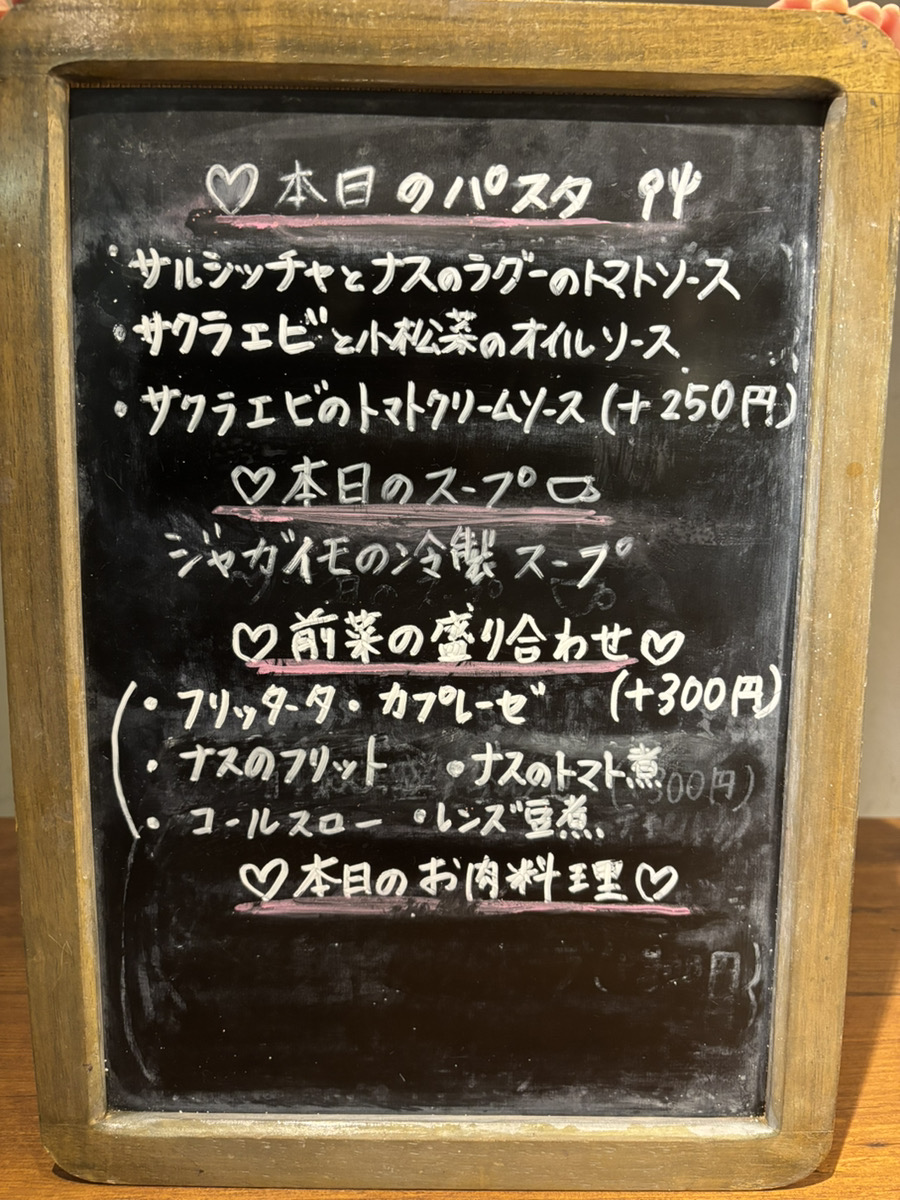 ♡本日のパスタ
・サルシッチャとナスのラグーのトマトソース
・サクラエビと小松菜のオイルソース
・サクラエビのトマトクリームソース(+250円)
♡本日のスープ
ジャガイモの冷製スープ
♡前菜の盛り合わせ♡
(・フリッタータ・カプレーゼ (+300円)
・ナスのフリット ・ナスのトマト煮
・コールスロー ・レンズ豆煮
♡本日のお肉料理♡